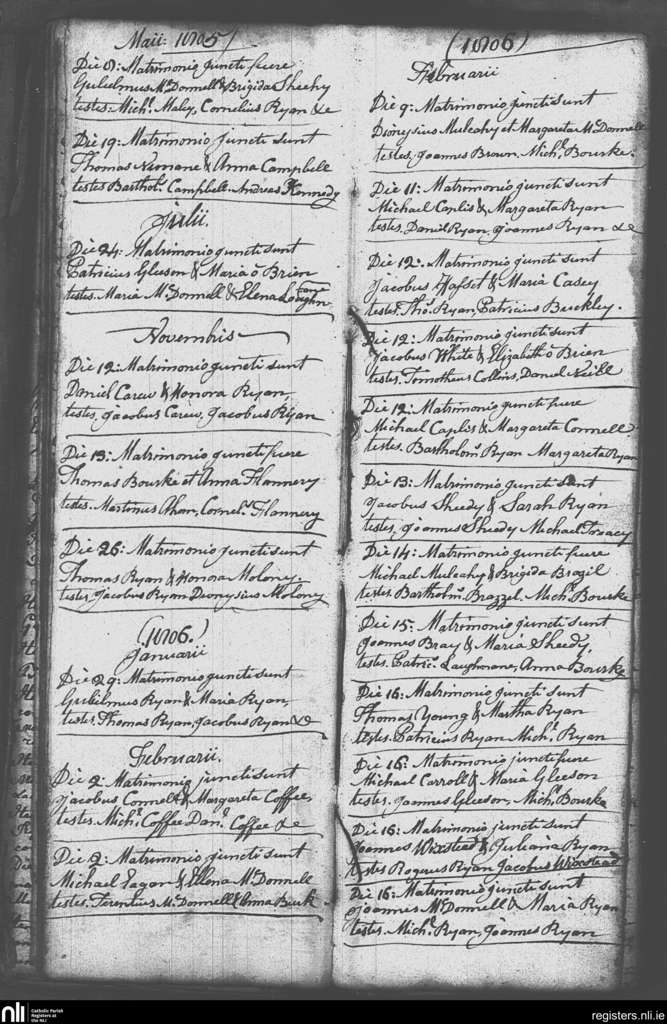 Maii: 1805
Die 8: Matrimonio juncti fuere
Gulielmus McDonnell & Brigida Sheehy
testes: Michl. Maly, Cornelius Ryan &c
Die 19: Matrimonio Juncti sunt
Thomas & Anna Campbell
testes Bartholw. Campbell. Andreas Kennedy
Julii.
Die 24: Matrimonio juncti sunt
Patricius Gleeson & Maria ô Brien
testes. Maria McDonnell & Elena
Novembris
Die 12: Matrimonio juncti sunt
Daniel Carew & Honora Ryan,
testes, Jacobus Carew, Jacobus Ryan
Die 13: Matrimonio juncti fuere
Thomas Bourke et Anna Flannery
testes. Martinus Ahern, Cornels. Flannery
Die 26: Matrimonio juncti sunt
Thomas Ryan & Honora Molony.
testes, Jacobus Ryan Dionysius Molony
(1806.)
Januarii
Die 29: Matrimonio juncti sunt
Gulielmus Ryan & Maria Ryan,
testes. Thomas Ryan, Jacobus Ryan &c
Februarii.
Die 2: Matrimonio juncti sunt
Jacobus Connell & Margareta Coffee,
testes. Michl. Coffee Danl. Coffee &c
Die 2: Matrimonio juncti sunt
Michael Fagan & Elena McDonnell
testes. Terentius McDonnell & Anna Burk
(1806)
Februarii
Die 9: Matrimonio juncti sunt
Dionysius Mulcahy et Margareta McDonnell
testes, Joannes Brown. Michl. Bourke.
Die 11: Matrimonio juncti sunt
Michael Caplis & Margareta Ryan
testes. Daniel Ryan, Joannes Ryan &c
Die 12: Matrimonio juncti sunt
Jacobus & Maria Casey
testes. Thos. Ryan, Patricius Buckley.
Die 12: Matrimonio juncti sunt
Jacobus White & Elizabeth ô Brien
testes. Timotheus Collins, Daniel Neill
Die 12: Matrimonio juncti fuere
Michael Caplis & Margareta Connell.
testes. Bartholms. Ryan Margareta Ryan
Die 13: Matrimonio juncti sunt
Jacobus Sheedy & Sarah Ryan
testes, Joannes Sheedy Michael Treacy
Die 14: Matrimonio juncti fuere
Michael Mulcahy & Brigida Brazil
testes. Bartholms. Brazzel. Michl. Bourke
Die 15: Matrimonio juncti sunt
Joannes Bray & Maria Sheedy,
testes. Patrics. Laughnane, Anna Bourke
Die 16: Matrimonio juncti sunt
Thomas Young & Martha Ryan
testes. Patricius Ryan Michl. Ryan
Die 16: Matrimonio juncti fuere
Michael Carroll & Maria Gleeson
testes. Joannes Gleeson. Michl. Bourke
Die 16: Matrimonio juncti sunt
Joannes Wixstead & Juliana Ryan
testes Rogerus Ryan Jacobus Wixstead
Die 16: Matrimonio juncti sunt
Joannes McDonnell & Maria Ryan
testes. Michl. Ryan, Joannes Ryan
nli
Catholic Parish
Registers at
the NLI
registers.nli.ie